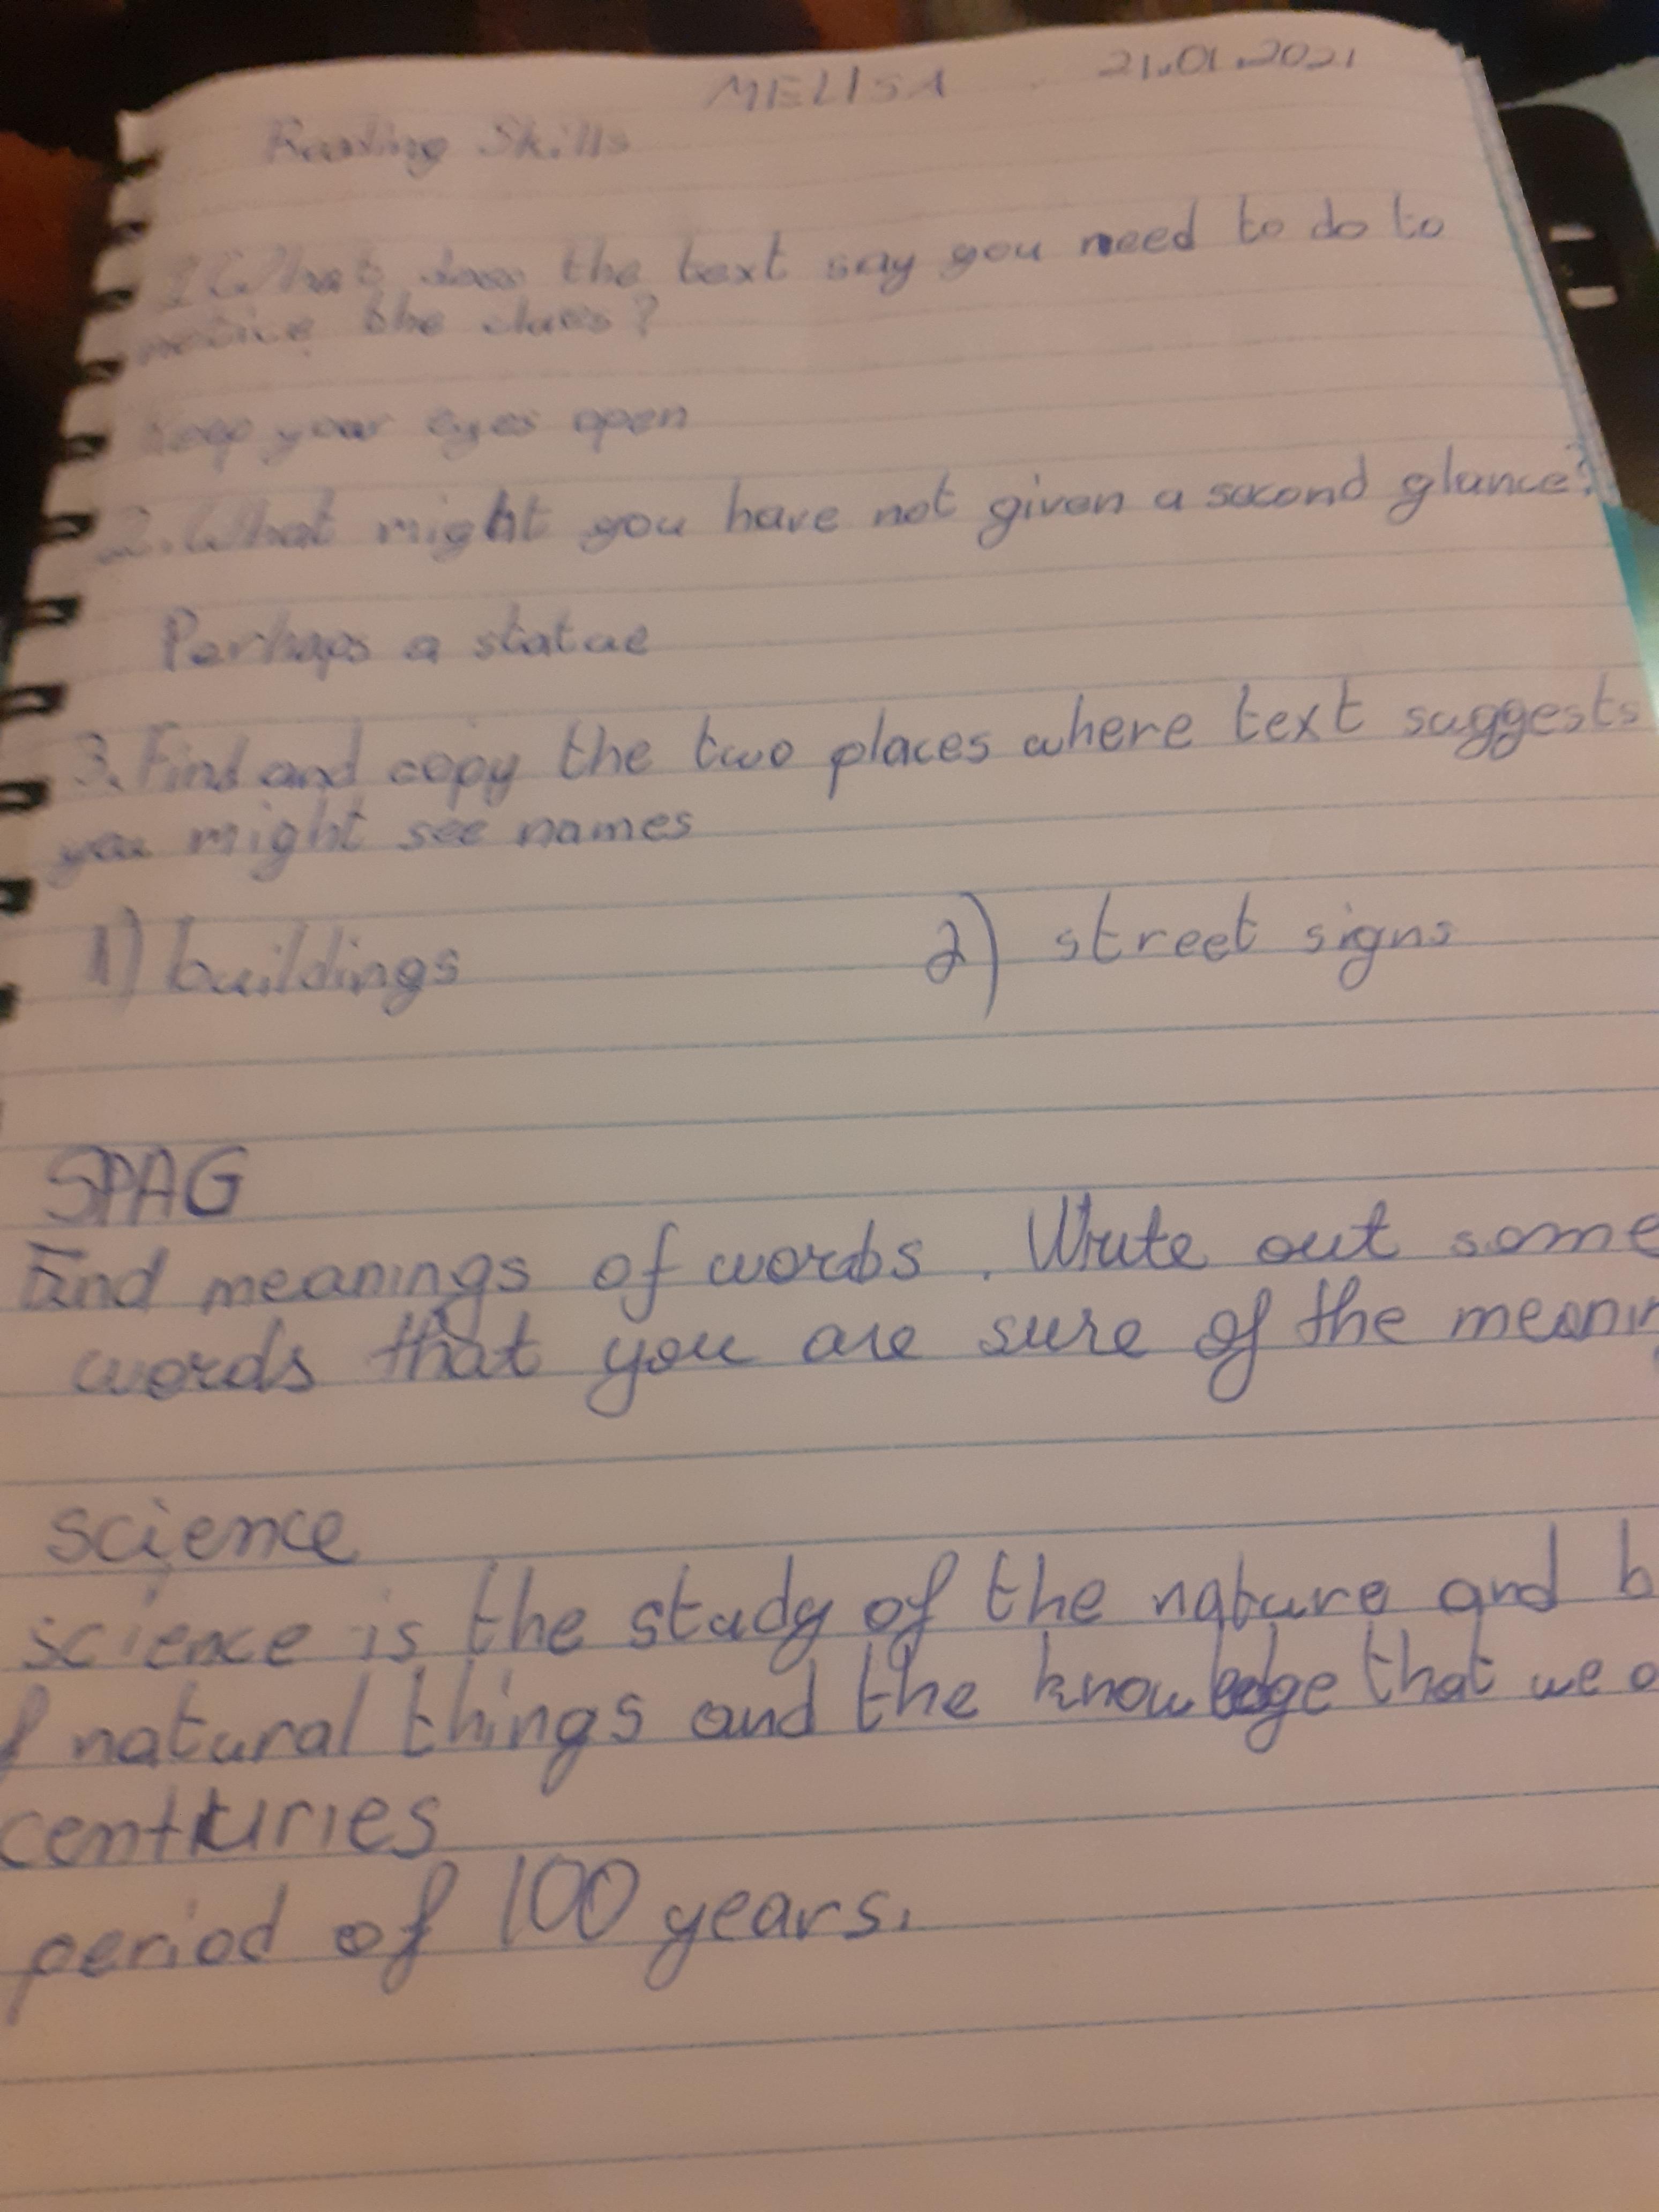 MELISA 21.01.2021
Reading Skills
1 What does the text say you need to do to
notice the clues?
Keep your eyes open
2. What might you have not given a second glance?
Perhaps a statue
3. Find and copy the two places where text suggests
you might see names
1) buildings 2) street signs
SPAG
Find meanings of words. Write out some
words that you are sure of the meanin
science
science is the study of the nature and b
f natural things and the knowledge that we o
centuries
period of 100 years.